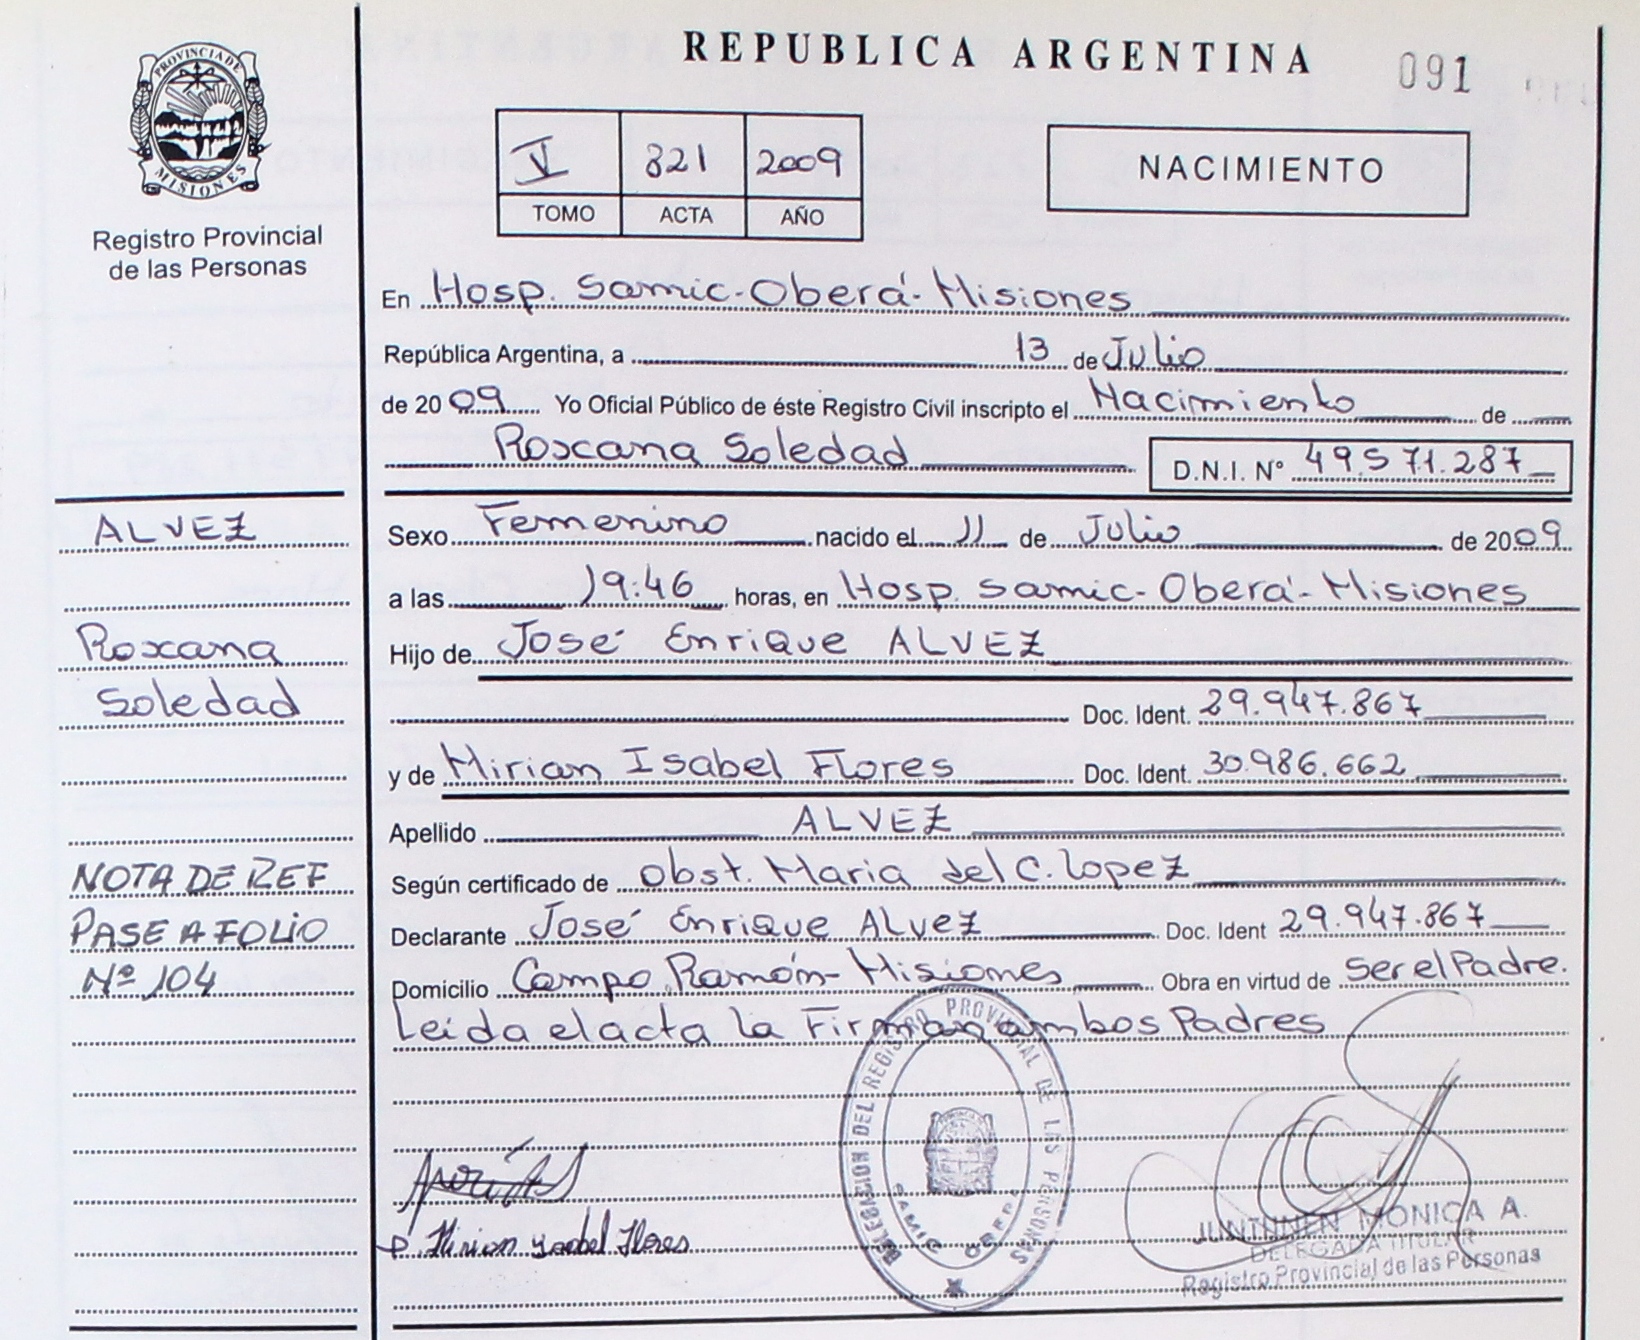 REPUBLICA ARGENTINA
091
PROVINCIA DE
MISIONES
Registro Provincial
de las Personas
V 821 2009
TOMO ACTA AÑO
NACIMIENTO
En Hosp. Samic-Oberá-Misiones
República Argentina, a 13 de Julio
de 2009 Yo Oficial Público de éste Registro Civil inscripto el Nacimiento de
Roxana Soledad D.N.I. Nº 49.571.287
ALVEZ
Roxana
Soledad
NOTA DE REF
PASE A FOLIO
Nº 104
Sexo Femenino nacido el 11 de Julio de 2009
a las 19:46 horas, en Hosp. Samic-Oberá-Misiones
Hijo de José Enrique ALVEZ
Doc. Ident. 29.947.867
y de Mirian Isabel Flores Doc. Ident. 30.986.662
Apellido ALVEZ
Según certificado de obst. Maria del C. Lopez
Declarante José Enrique ALVEZ Doc. Ident 29.947.867
Domicilio Campo Ramón-Misiones Obra en virtud de Ser el Padre.
Leida el acta la Firman ambos Padres
DELEGACION DEL REGISTRO PROVINCIAL DE LAS PERSONAS
SAMIC OBERA
Mirian Ysabel Flores
JUNTUNEN MONICA A.
DELEGADA TITULAR
Registro Provincial de las Personas